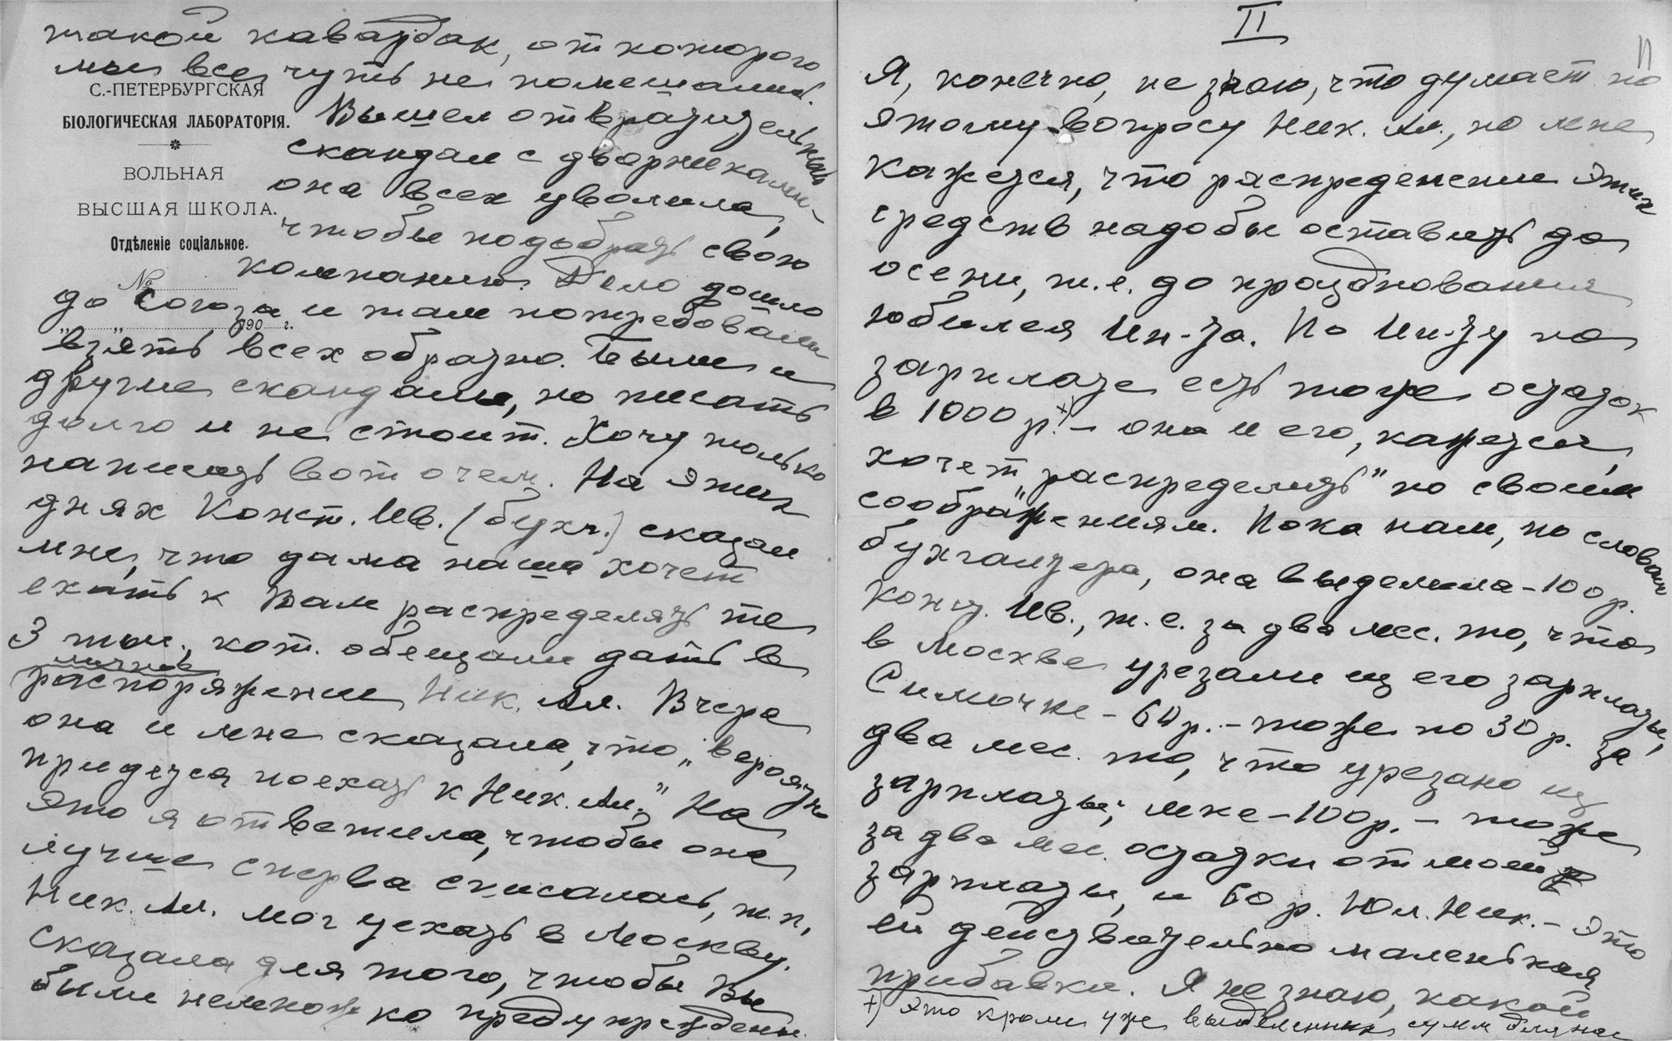 такой кавардак, от которого
мы все чуть не помешались.
С.-ПЕТЕРБУРГСКАЯ
БІОЛОГИЧЕСКАЯ ЛАБОРАТОРІЯ.
ВОЛЬНАЯ
ВЫСШАЯ ШКОЛА.
Отдѣленіе соціальное.
№
190 г.
Вышел отвратительный
скандал с дворниками –
она всех уволила,
чтобы подобрать свою
компанию. Дело дошло
до Союза и там потребовали
взять всех обратно. Были и
другие скандалы, но писать
долго и не стоит. Хочу только
написать вот о чем. На этих
днях Конст. Ив. (бухг.) сказал
мне, что дама наша хочет
ехать к Вам распределять те
3 тыс., кот. обещали дать в
личное
распоряжение Ник. Ал. Вчера
она и мне сказала, что „вероятно
придется поехать к Ник. Ал.” На
это я ответила, чтобы она
лучше сперва списалась, т.п,
Ник. Ал. мог уехать в Москву.
Сказала для того, чтобы Вы
были немножко предупреждены.
II
11
Я, конечно, не знаю, что думает по
этому вопросу Ник. Ал., но мне
кажется, что распределение этих
средств надо бы оставить до
осени, т.е. до празднования
юбилея Ин-та. По Ин-ту по
зарплате есть тоже остаток
в 1000 р.+) – она и его, кажется,
хочет „распределить” по своим
соображениям. Пока нам, по словам
бухгалтера, она выделила – 100 р.
Конст. Ив., т.е. за два мес. то, что
в Москве урезали из его зарплаты,
Симочке – 60 р. – тоже по 30 р. за
два мес. то, что урезано из
зарплаты; мне – 100 р. – тоже
за два мес. остатки от моей
зарплаты, и 60 р. Юл. Ник. – это
ей действительно маленькая
прибавка. Я не знаю, какой
+) это кроме уже выделенных сумм для нас